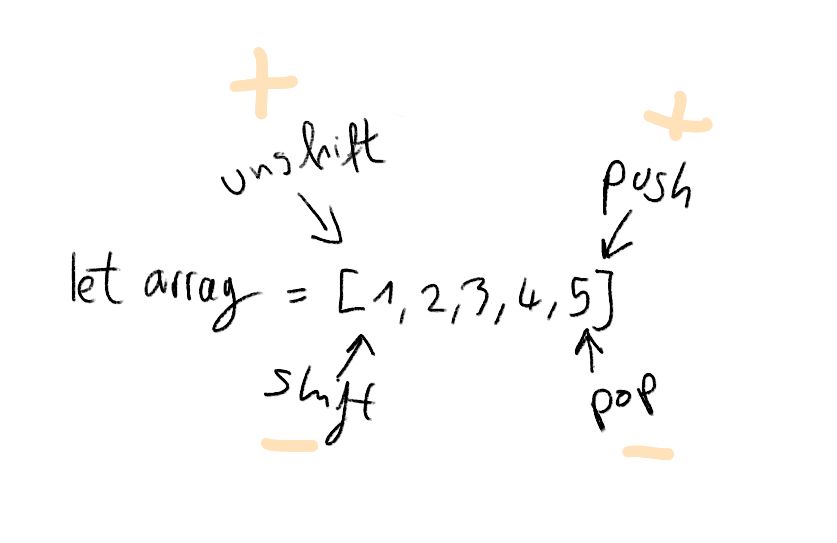 +
+
unshift
push
let array = [1, 2, 3, 4, 5]
shift
pop
-
-